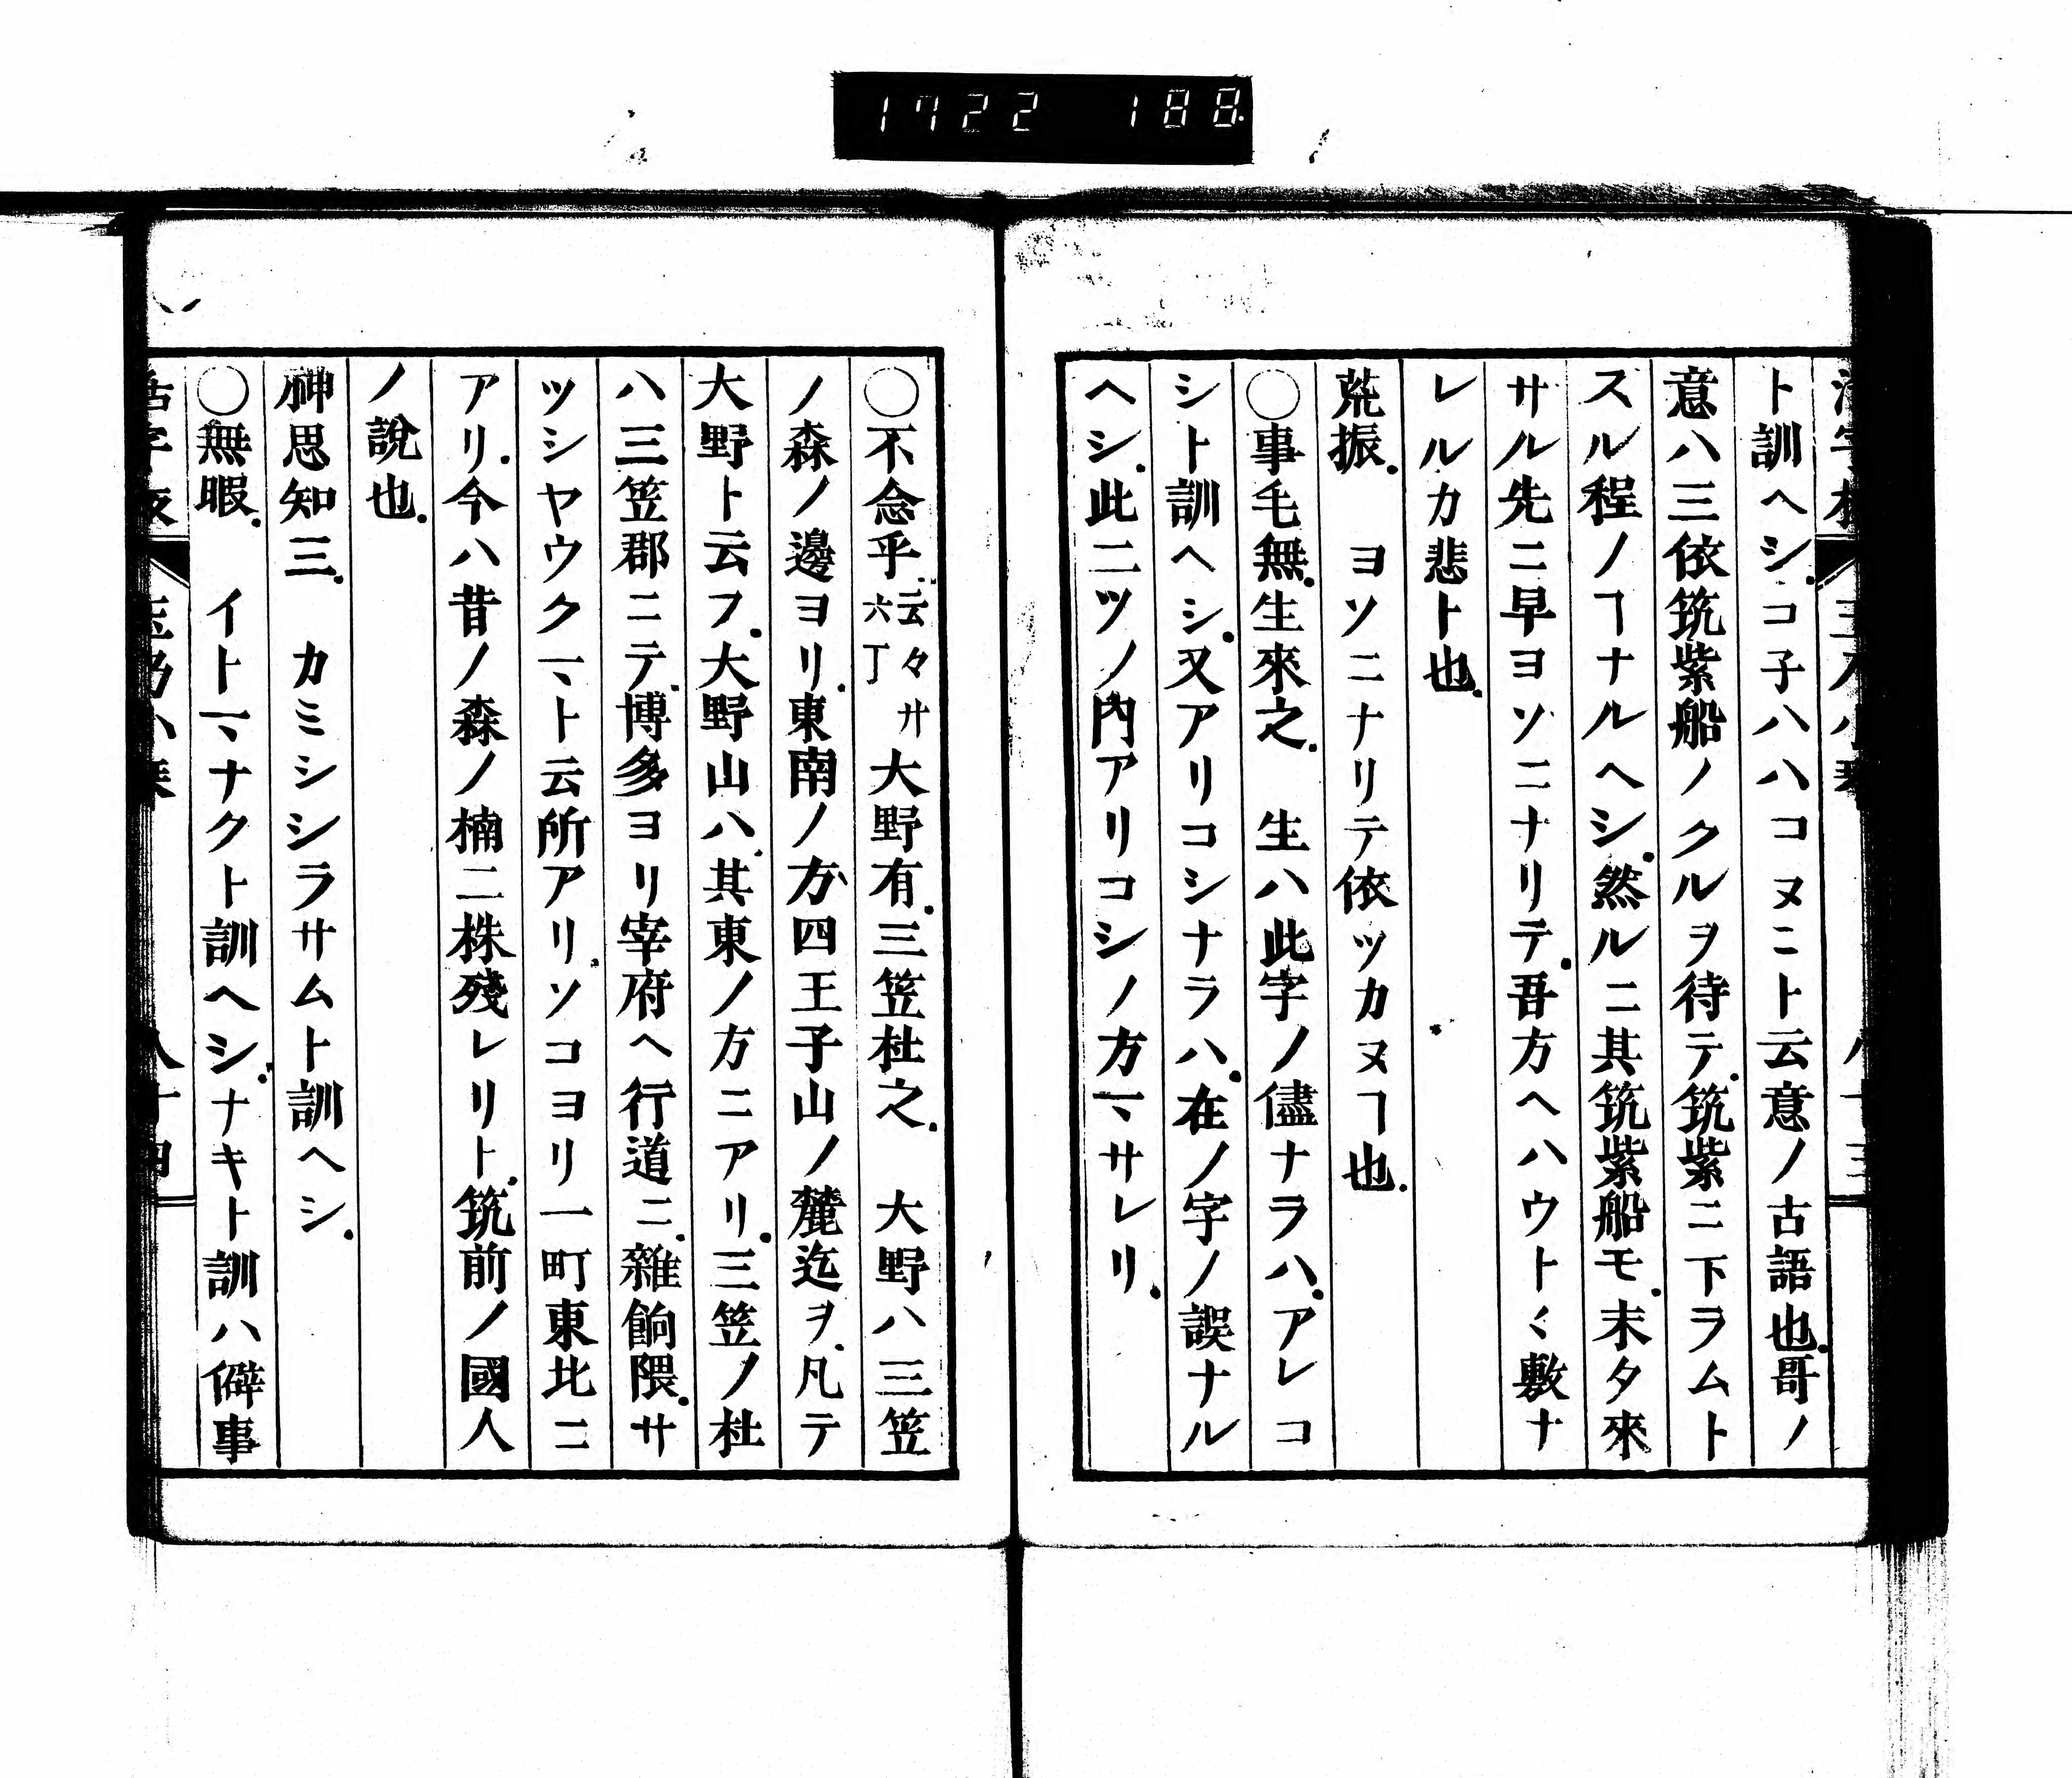 1722 188
ト訓ヘシ.コ子ハハコヌニト云意ノ古語也.哥ノ
意ハ三依筑紫船ノクルヲ待テ.筑紫ニ下ヲムト
スル程ノヿナルヘシ.然ルニ其筑紫船モ.未タ來
サル先ニ早ヨソニナリテ.吾方ヘハウト〱敷ナ
レルカ悲ト也.
荒振.　ヨソニナリテ依ツカヌヿ也.
〇事毛無.生來之.　生ハ此字ノ儘ナラハ.アレコ
シト訓ヘシ.又アリコシナラハ.在ノ字ノ誤ナル
ヘシ.此二ツノ內アリコシノ方マサレリ.
〇不念乎.云々六丁 サ 大野有.三笠杜之.　大野ハ三笠
ノ森ノ邊ヨリ.東南ノ方四王子山ノ麓迄ヲ.凡テ
大野ト云フ.大野山ハ.其東ノ方ニアリ.三笠ノ杜
ハ三笠郡ニテ.博多ヨリ宰府ヘ行道ニ.雜餉隈.サ
ツシヤウクマト云所アリ.ソコヨリ一町東北ニ
アリ.今ハ昔ノ森ノ楠二株殘レリト.筑前ノ國人
ノ說也.
神思知三.　カミシシラサムト訓ヘシ.
〇無暇.　イトマナクト訓ヘシ.ナキト訓ハ僻事